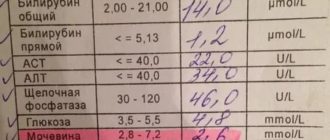 Билирубин общий 2,00 - 21,00 14,0 µmol/L
Билирубин прямой <= 5,13 1,2 µmol/L
АСТ <= 40,0 22,0 U/L
АЛТ <= 40,0 34,0 U/L
Щелочная фосфатаза 30 - 120 46,0 U/L
Глюкоза 3,5 - 5,5 4,8 mmol/L
Мочевина 2,8 - 7,2 2,6 mmol/L